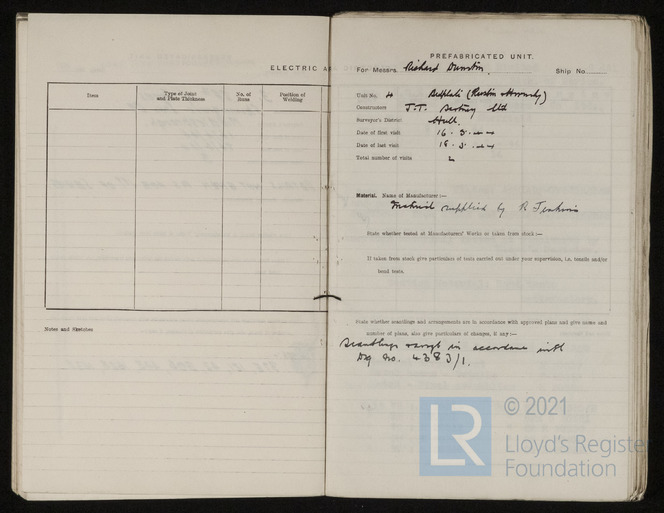 ELECTRIC A
Item
Type of Joint and Plate Thickness
No. of Runs
Position of Welding
Notes and Sketches
PREFABRICATED UNIT.
For Messrs. Richard Dunston. Ship No.
Unit No. 4 (Ruston Hornsby)
Constructors J.T. Ltd
Surveyor's District Hull.
Date of first visit 16. 3. 44
Date of last visit 18. 3. 44
Total number of visits 2
Material. Name of Manufacturer:—
Material supplied by R Jenkins
State whether tested at Manufacturers' Works or taken from stock:—
If taken from stock give particulars of tests carried out under your supervision, i.e. tensile and/or
bend tests.
State whether scantlings and arrangements are in accordance with approved plans and give name and
number of plans, also give particulars of changes, if any:—
Scantlings & arrgt in accordance with
Dg No. 4383/1.
LR
© 2021
Lloyd's Register
Foundation